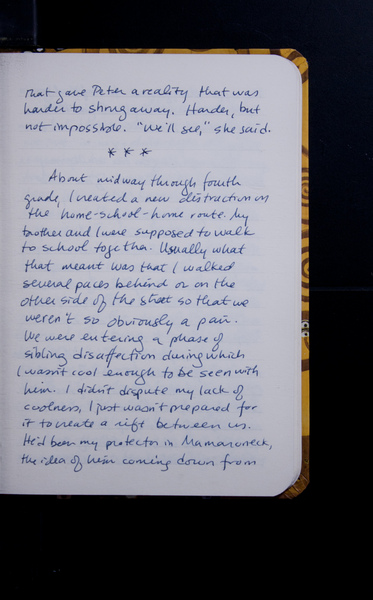 that gave Peter a reality that was
harder to shrug away. Harder, but
not impossible. "We'll see," she said.
***
About midway through fourth
grade, I created a new distraction on
the home-school-home route. My
brother and I were supposed to walk
to school together. Usually what
that meant was that I walked
several paces behind or on the
other side of the street so that we
weren't so obviously a pair.
We were entering a phase of
sibling disaffection during which
I wasn't cool enough to be seen with
him. I didn't dispute my lack of
coolness, I just wasn't prepared for
it to create a rift between us.
He'd been my protector in Mamaroneck,
the idea of him coming down from